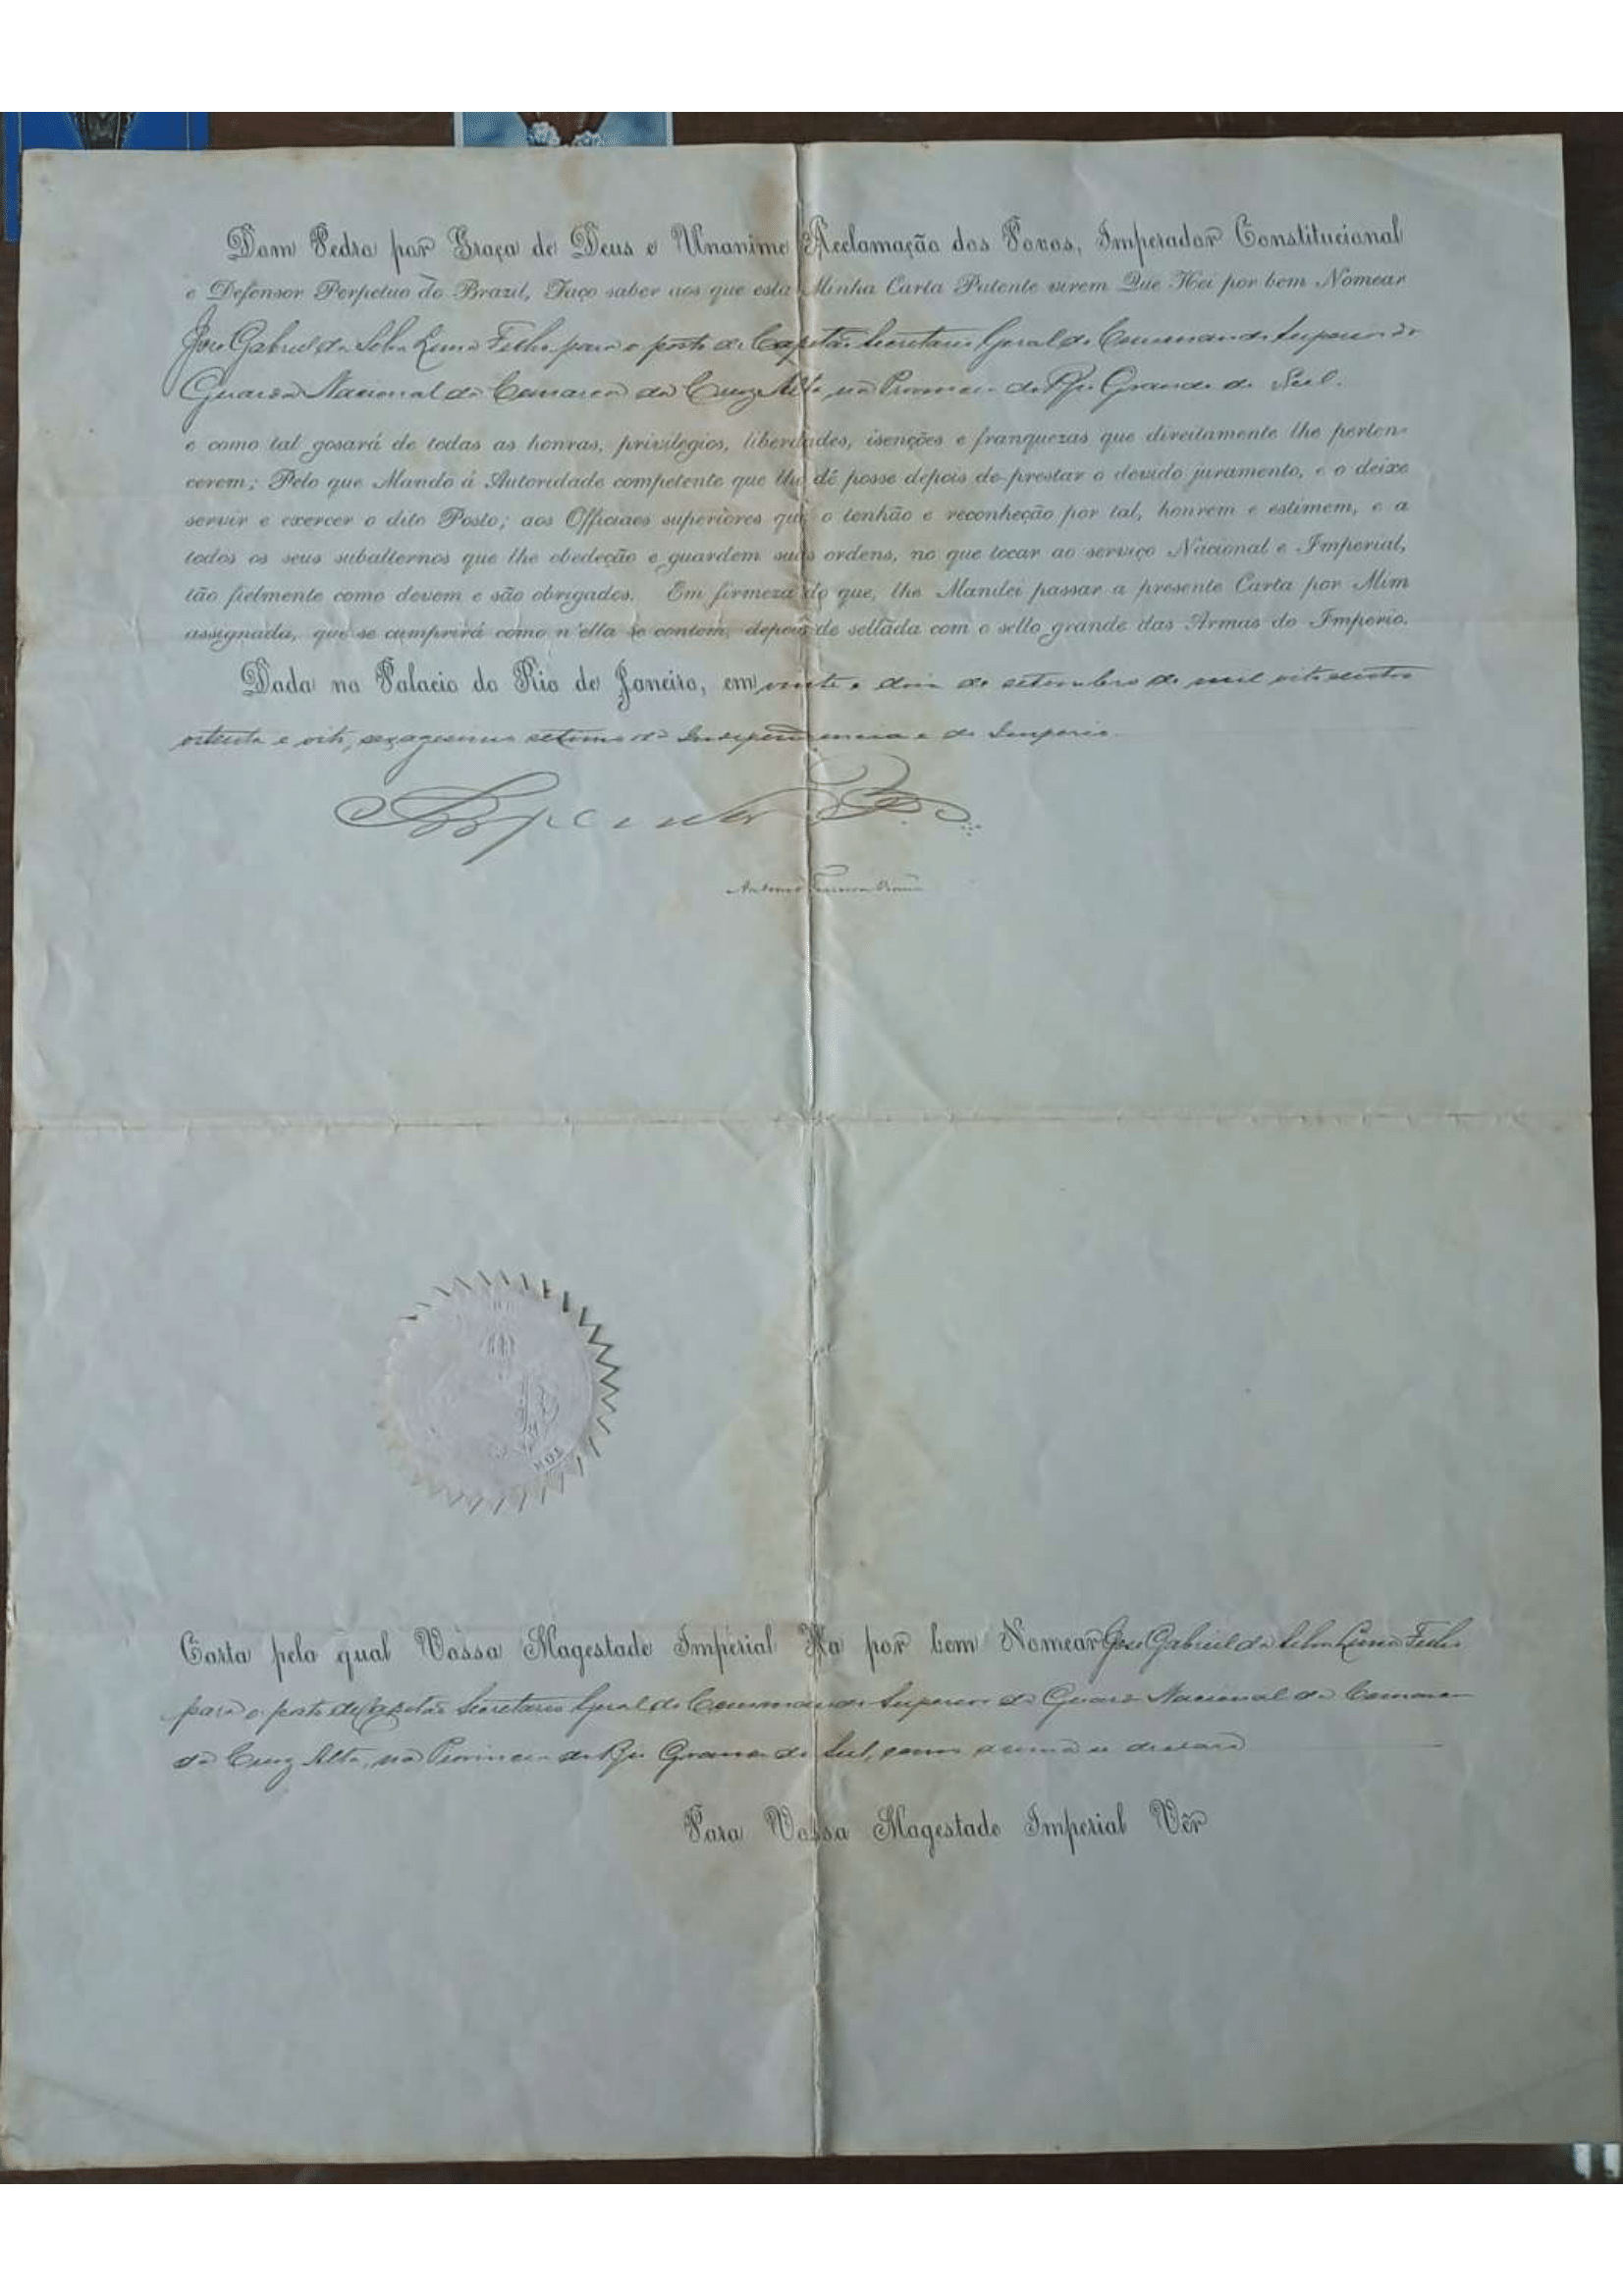 Dom Pedro por Graça de Deus e Unanime Acclamação dos Povos, Imperador Constitucional
e Defensor Perpetuo do Brazil, Faço saber aos que esta Minha Carta Patente virem Que Hei por bem Nomear
José Gabriel da Silva Lima Filho para o posto de Capitão Secretario Geral do Commando Superior da
Guarda Nacional da Comarca da Cruz Alta na Provincia do Rio Grande do Sul.
e como tal gosará de todas as honras, privilegios, liberdades, isenções e franquezas que direitamente lhe perten-
cerem; Pelo que Mando á Autoridade competente que lhe dê posse depois de prestar o devido juramento, e o deixe
servir e exercer o dito Posto; aos Officiaes superiores que o tenhão e reconheção por tal, honrem e estimem, e a
todos os seus subalternos que lhe obedeção e guardem suas ordens, no que tocar ao serviço Nacional e Imperial,
tão fielmente como devem e são obrigados. Em firmeza do que, lhe Mandei passar a presente Carta por Mim
assignada, que se cumprirá como n'ella se contem, depois de sellada com o sello grande das Armas do Imperio.
Dada no Palacio do Rio de Janeiro, em vinte e dois de setembro de mil oitocentos
oitenta e oito, sexagesimo setimo da Independencia e do Imperio.
Antonio Ferreira Vianna
Carta pela qual Vossa Magestade Imperial Ha por bem Nomear José Gabriel da Silva Lima Filho
para o posto de Capitão Secretario Geral do Commando Superior da Guarda Nacional da Comarca
da Cruz Alta, na Provincia do Rio Grande do Sul, como acima se declara
Para Vossa Magestade Imperial Vêr